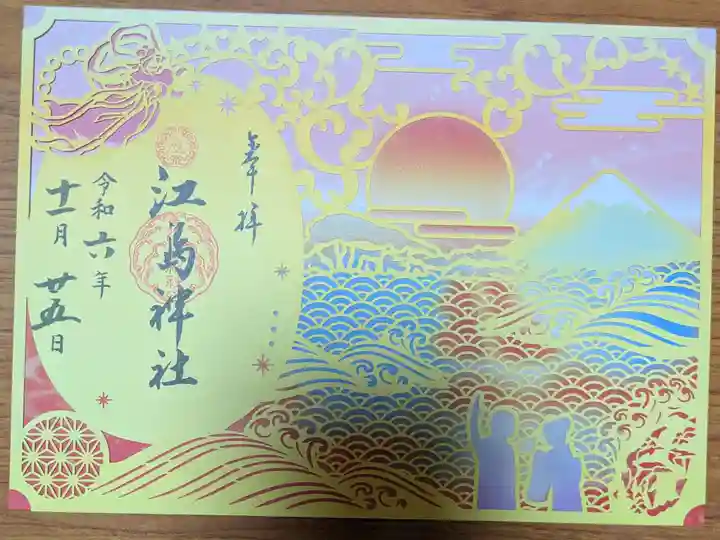 奉拝
江島神社
令和六年
十一月廿五日